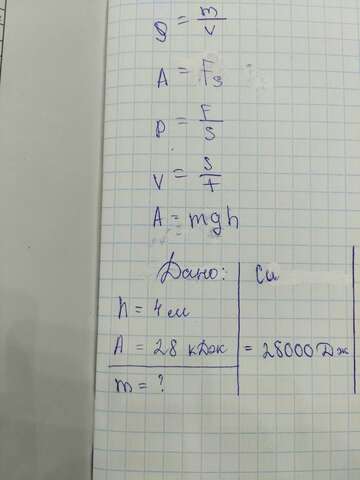 ρ = m/V
A = Fs
p = F/S
V = S/t
A = mgh
Дано: Си
h = 4 м
A = 28 кДж = 28000 Дж
m = ?